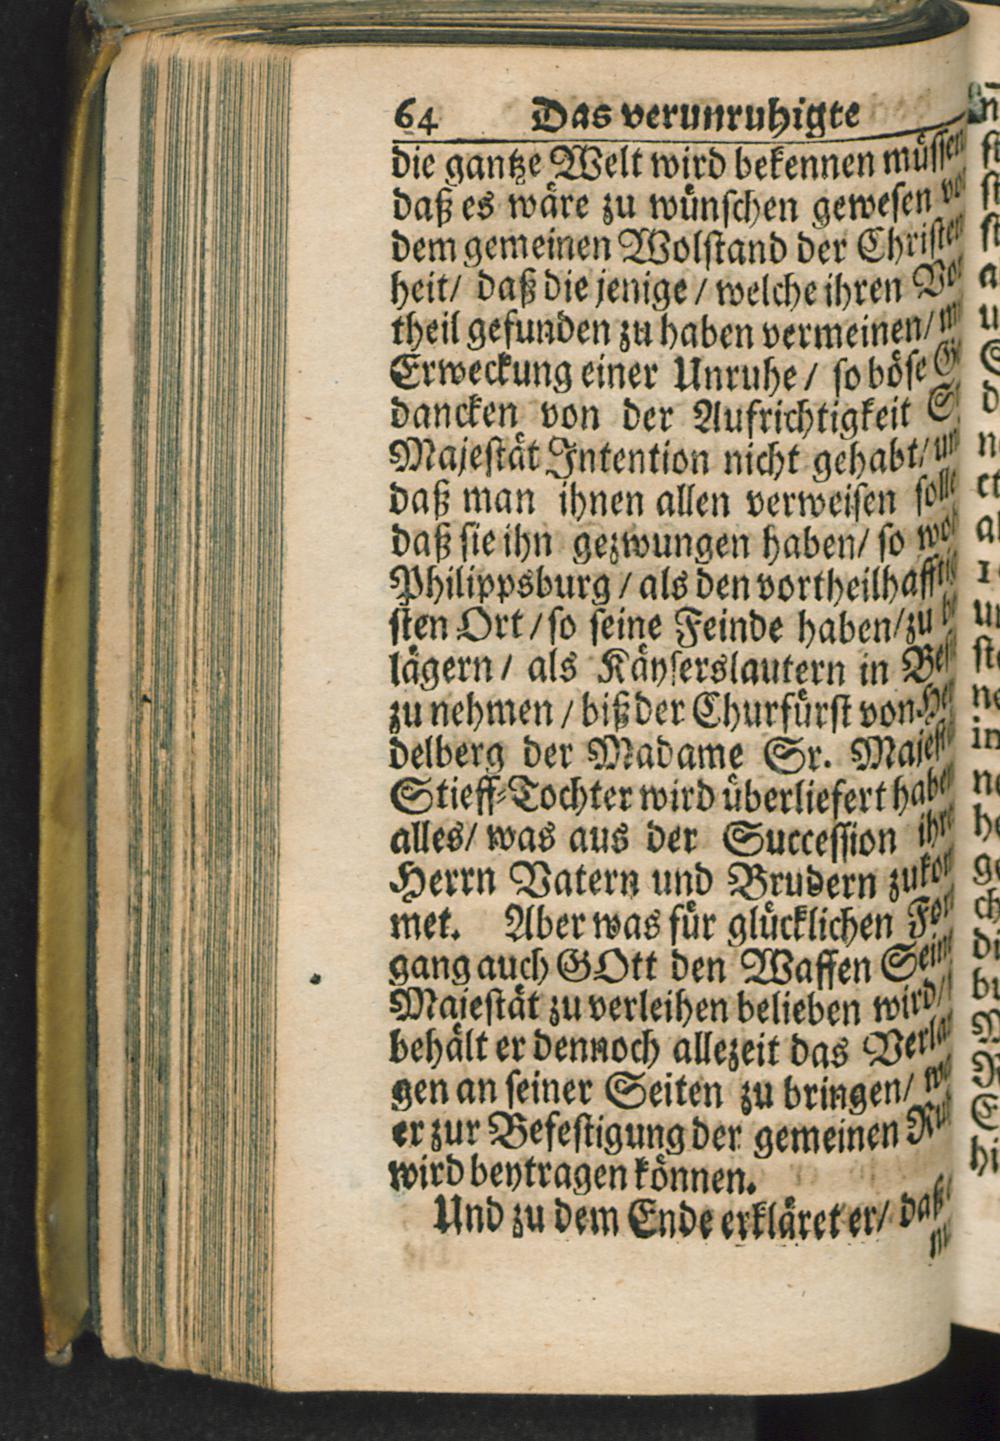 64 Das verunruhigte
die gantze Welt wird bekennen müssen
daß es wäre zu wünschen gewesen
dem gemeinen Wolstand der Christen
heit/ daß die jenige / welche ihren Vor
theil gefunden zu haben vermeinen/
Erweckung einer Unruhe / so böse
dancken von der Aufrichtigkeit
Majestät Intention nicht gehabt/
daß man ihnen allen verweisen solle
daß sie ihn gezwungen haben/ so wol
Philippsburg / als den vortheilhafftig
sten Ort / so seine Feinde haben/zu
lägern / als Käyserslautern in
zu nehmen / biß der Churfürst von
delberg der Madame Sr. Majest
Stieff-Tochter wird überliefert haben
alles/ was aus der Succession ihr
Herrn Vatern und Brudern zukom
met. Aber was für glücklichen
gang auch GOtt den Waffen Sein
Majestät zu verleihen belieben wird/
behält er dennoch allezeit das Verlan
gen an seiner Seiten zu bringen/
er zur Befestigung der gemeinen Ruh
wird beytragen können.
Und zu dem Ende erkläret er/ daß